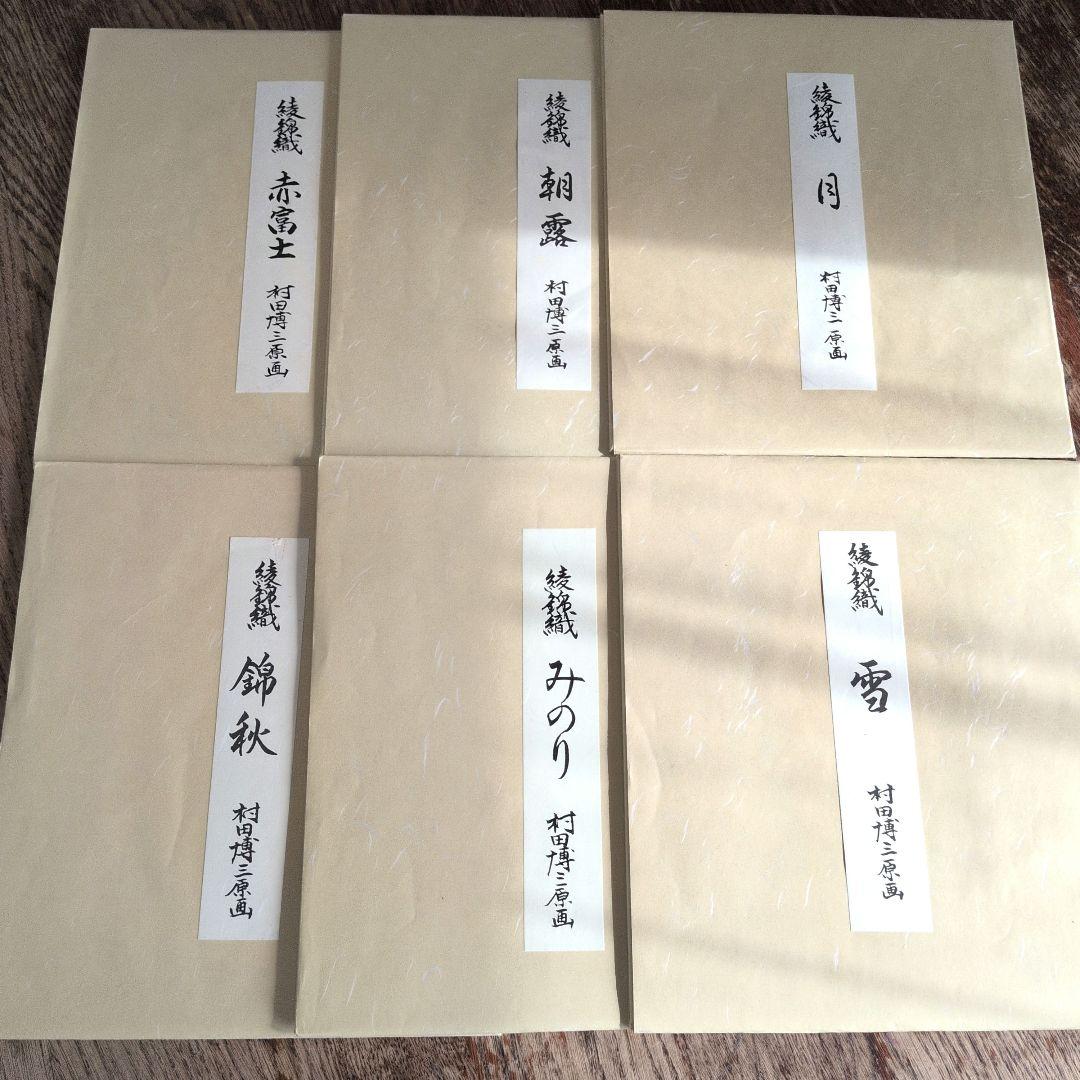 綾錦織 赤富士 村田博三原画
綾錦織 朝露 村田博三原画
綾錦織 月 村田博三原画
綾錦織 錦秋 村田博三原画
綾錦織 みのり 村田博三原画
綾錦織 雪 村田博三原画